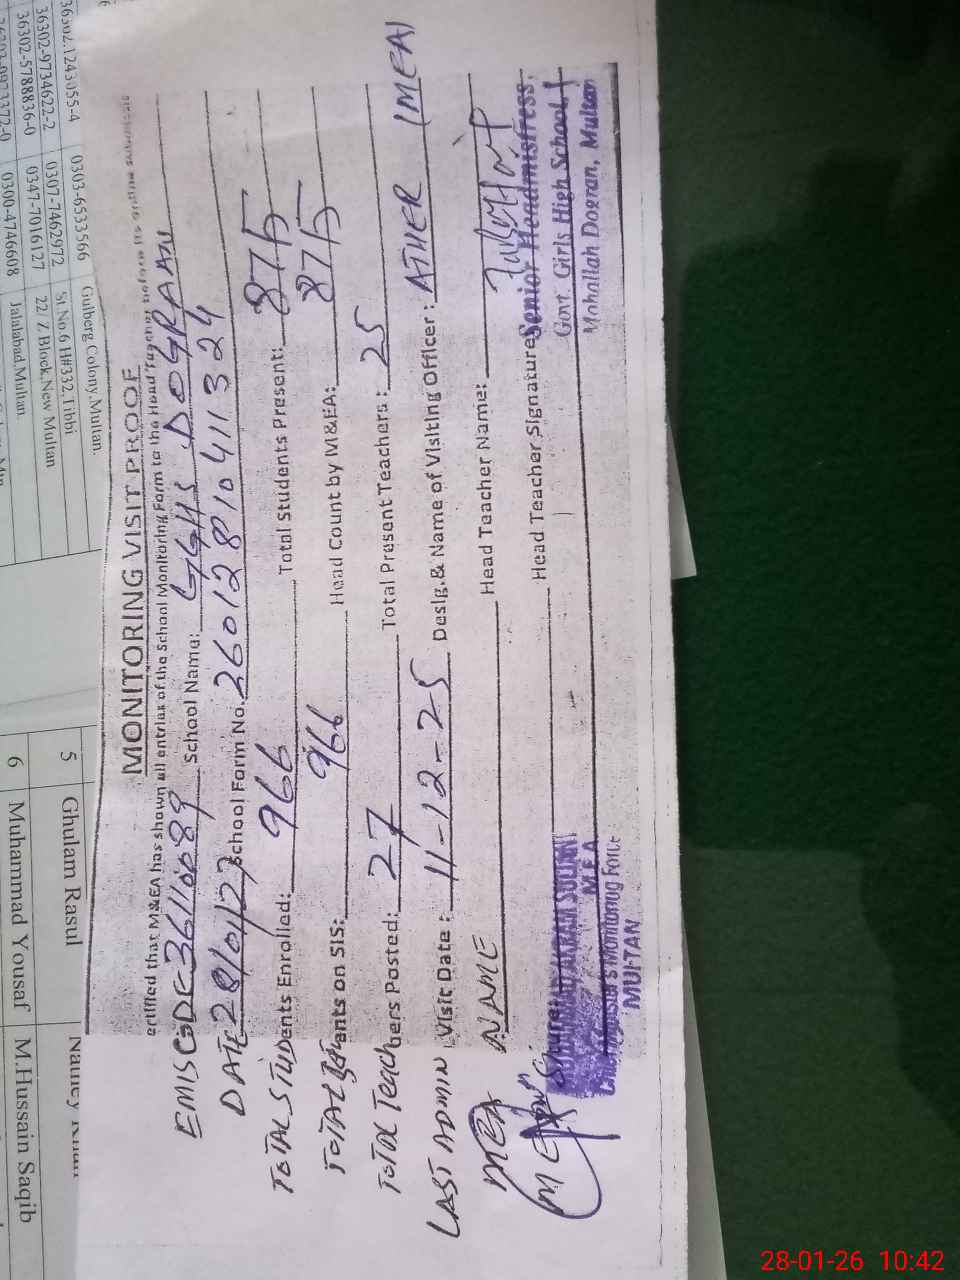 MONITORING VISIT PROOF
ertified that M&EA has shown all entries of the School Monitoring Form to the Head Teacher before its online submission
EMIS CODE 36110089 School Name: GGHS DOGRAAN
DATE 28/01/27 School Form No. 26012810411324
TOTAL STUDents Enrolled: 966 Total Students Present: 875
TOTAL ents on SIS: 966 Head Count by M&EA: 875
TOTAL Teachers Posted: 27 Total Present Teachers: 25
LAST ADMIN Visit Date: 11-12-25 Desig.& Name of Visiting Officer: ATHER (MEA)
MEA NAME Head Teacher Name:
MEA Head Teacher Signature
Senior Headmistress
Govt. Girls High School
Mohallah Dogran, Multan
MUHAMMAD AKRAM SULTAN
M.E.A
Chief Minister's Monitoring Force
MULTAN
36302-1243055-4 0303-6533566 Gulberg Colony, Multan.
36302-9734622-2 0307-7462972 St.No.6 H#332, Tibbi
36302-5788836-0 0347-7016127 22/ Z Block,New Multan
0300-4746608 Jalalabad,Multan
5 Ghulam Rasul
6 Muhammad Yousaf M.Hussain Saqib
28-01-26 10:42